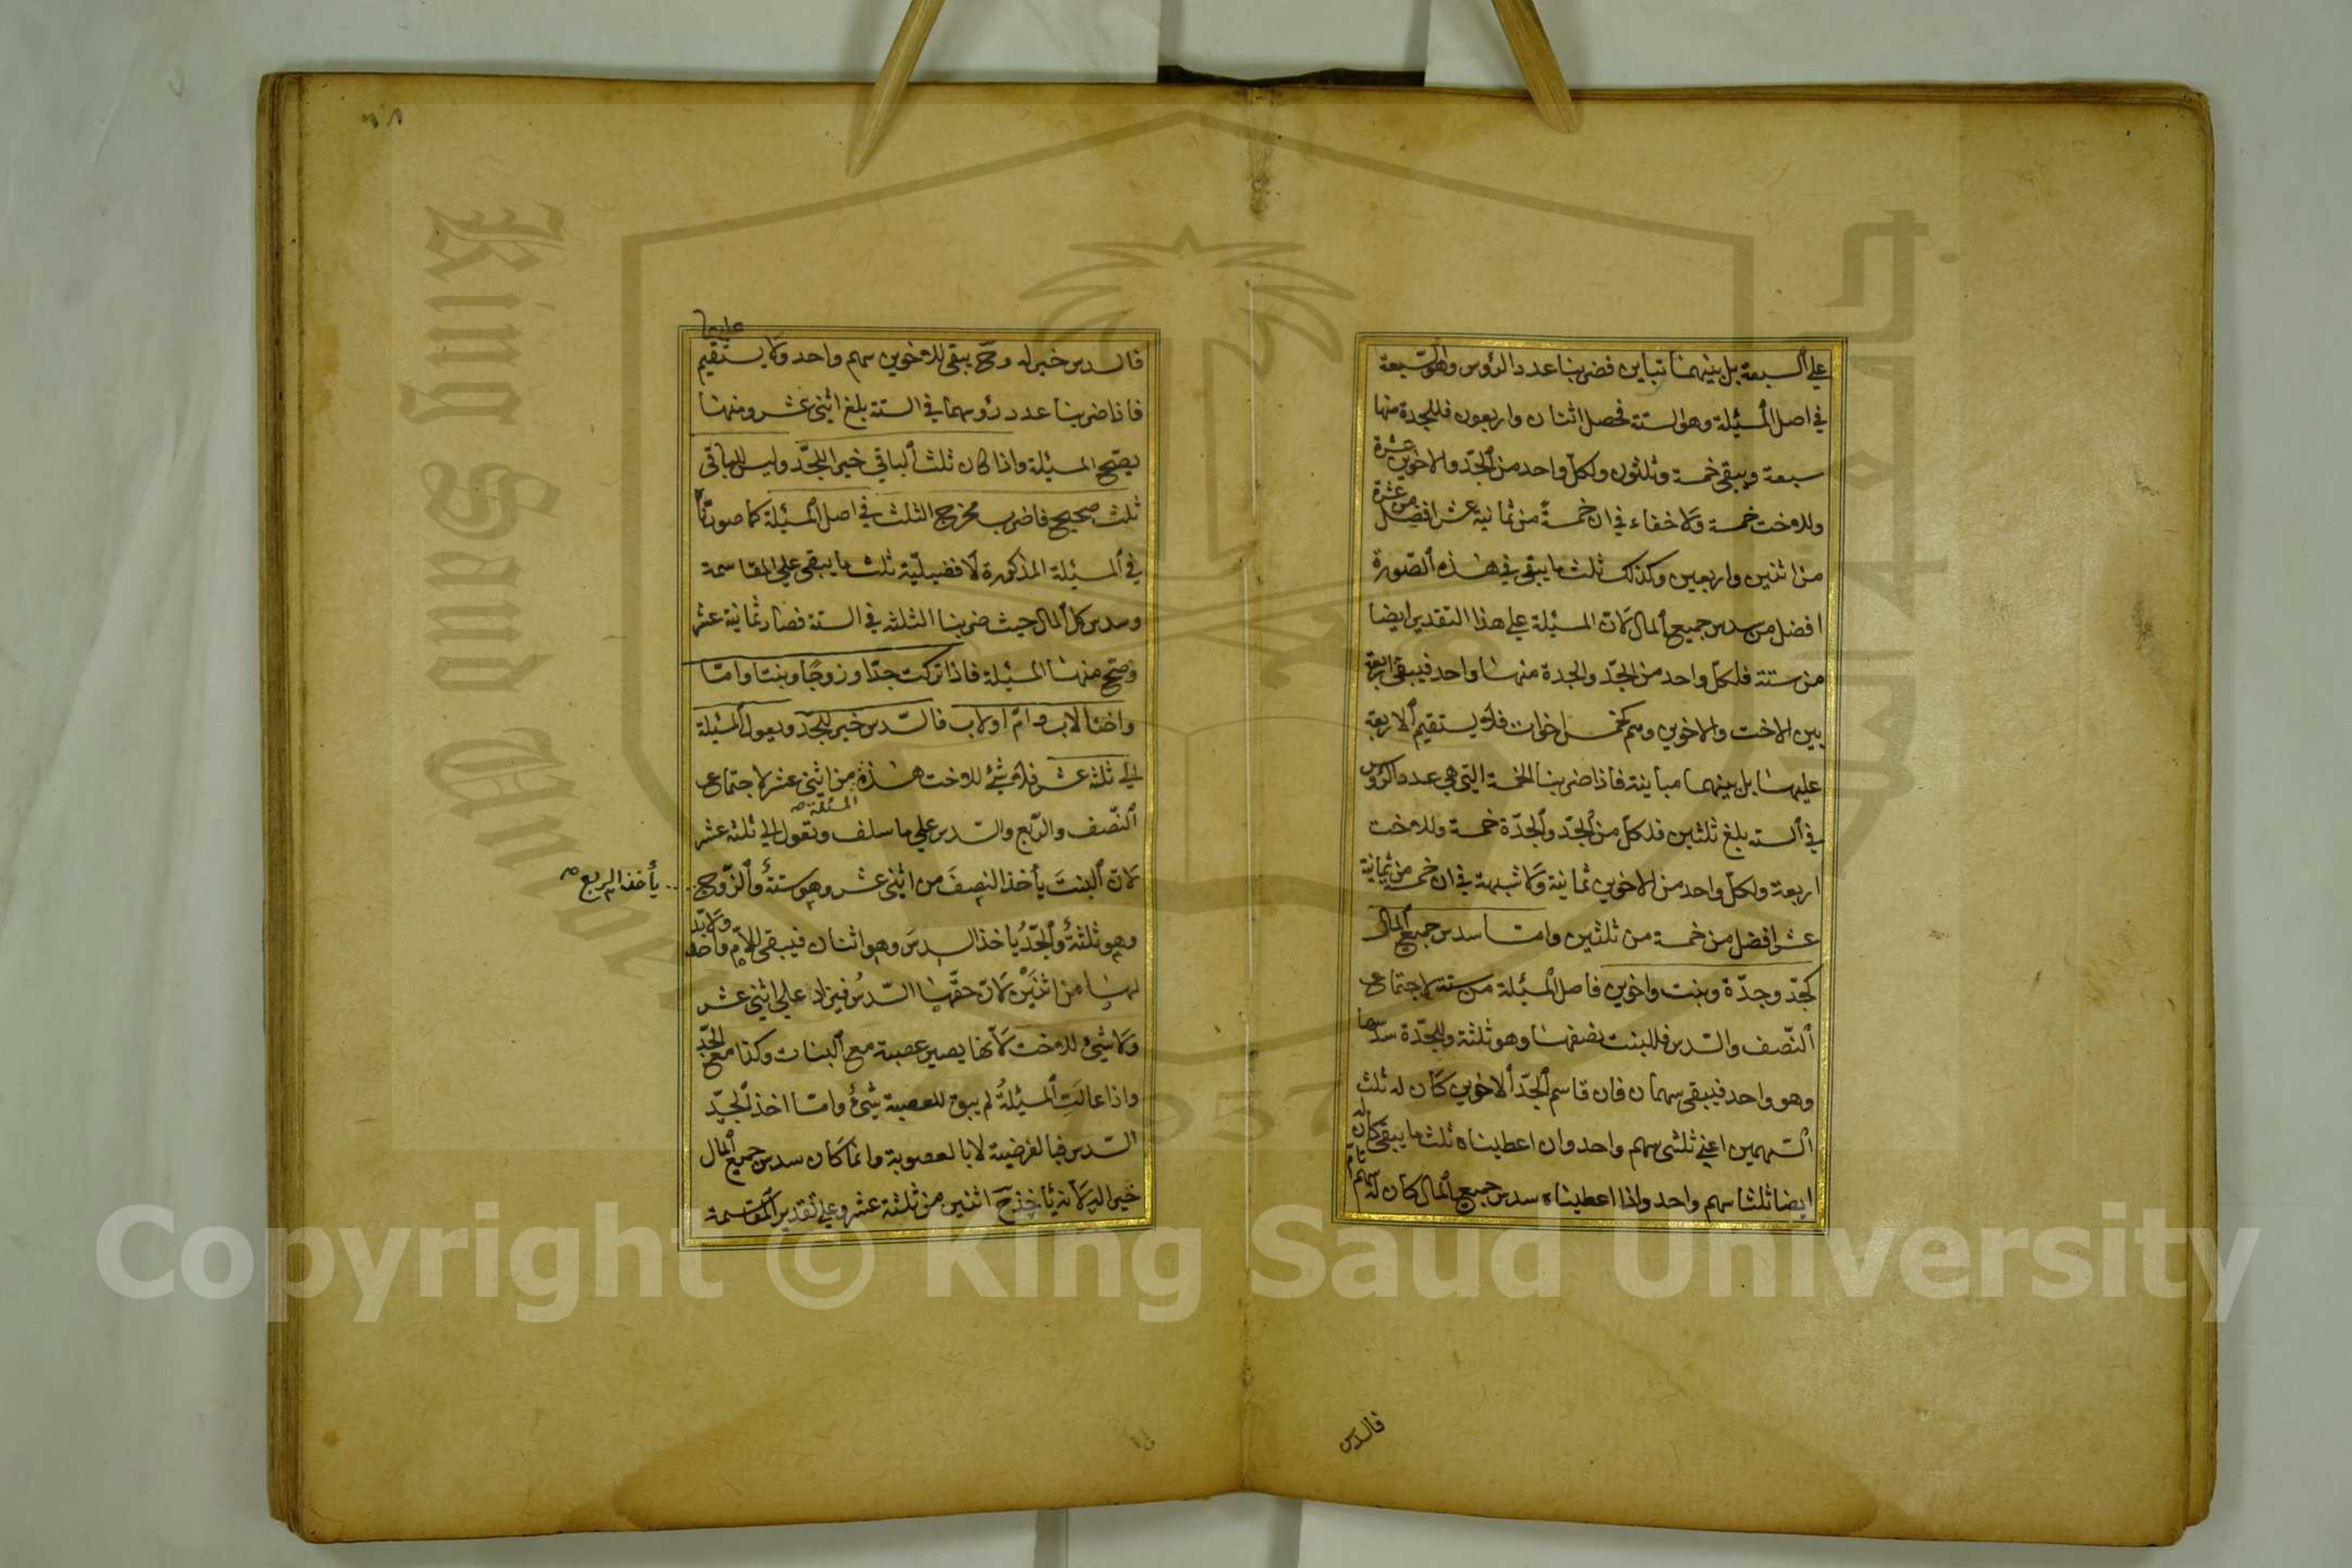 علي السبعة بل بينهما تباين فضربنا عدد الرؤس وهو السبعة
في اصل المسئلة وهو الستة فحصل اثنان واربعون فللجدة منها
سبعة ويبقى خمسة وثلثون ولكل واحد من الجد والاخوين عشرة
وللاخت خمسة ولا خفاء في ان خمسة من ثمانية عشر افضل من عشرة
من اثنين واربعين وكذلك ثلث ما يبقى في هذه الصورة
افضل من سدس جميع المال لان المسئلة علي هذا التقدير ايضا
من ستة فلكل واحد من الجد والجدة منها واحد فيبقى اربعة
بين الاخت والاخوين وهم كخمس اخوات فلا يستقيم الاربعة
عليها بل بينهما مباينة فاذا ضربنا الخمسة التي هي عدد الرؤس
في الستة بلغ ثلثين فلكل من الجد والجدة خمسة وللاخت
اربعة ولكل واحد من الاخوين ثمانية ولا شبهة في ان خمسة من ثمانية
عشر افضل من خمسة من ثلثين واما سدس جميع المال
كجد وجدة وبنت واخوين فاصل المسئلة من ستة لاجتماع
النصف والسدس فللبنت نصفها وهو ثلثة وللجدة سدسها
وهو واحد فيبقى سهمان فان قاسم الجد الاخوين كان له ثلث
السهمين اعني ثلثي سهم واحد وان اعطيناه ثلث ما يبقى كان له
ايضا ثلثا سهم واحد واذا اعطيناه سدس جميع المال كان له سهم تام
فالسدس
عليهما
فالسدس خير له وح يبقى للاخوين سهم واحد ولا يستقيم
فاذا ضربنا عدد رؤسهما في الستة بلغ اثنى عشر ومنها
يصح المسئلة واذا كان ثلث الباقي خيرا للجد وليس للباقي
ثلث صحيح فاضرب مخرج الثلث في اصل المسئلة كما صورنا
في المسئلة المذكورة لافضيلية ثلث ما يبقى علي المقاسمة
وسدس كل المال حيث ضربنا الثلثة في الستة فصار ثمانية عشر
وصح منها المسئلة فاذا تركت جدا وزوجا وبنتا واما
واختا لاب وام او لاب فالسدس خير للجد ويعول المسئلة
الي ثلثة عشر فلا شئ للاخت هذه من اثنى عشر لاجتماع
المسئلة صح
النصف والربع والسدس علي ما سلف وتعول الي ثلثة عشر
لان البنت يأخذ النصف من اثنى عشر وهو ستة والزوج
يأخذ الربع صح
وهو ثلثة والجد يأخذ السدس وهو اثنان فيبقى للام واحد ولا بد
لها من اثنين لان حقها السدس فيزاد علي اثنى عشر
ولا شئ للاخت لانها يصير عصبة مع البنات وكذا مع الجد
واذا عالت المسئلة لم يبق للعصبة شئ واما اخذ الجد
السدس فبالفرضية لا بالعصوبة وانما كان سدس جميع المال
خيرا له لانه يأخذ ح اثنين من ثلثة عشر وعلي تقدير المقاسمة